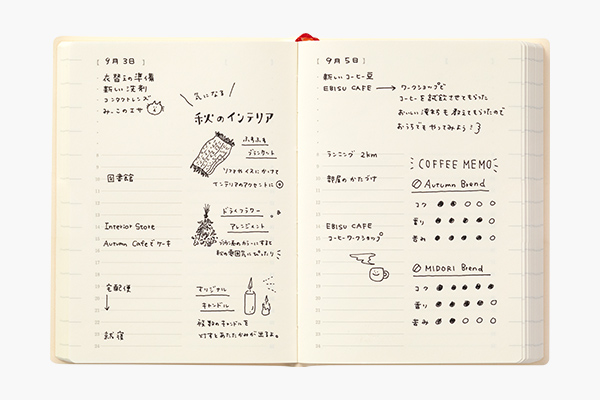 [ 9月3日 ]
衣替えの準備
新しい洗剤
・コンタクトレンズ
みーこのエサ
気になる
秋のインテリア
ふわふわ
ブランケット
ソファやイスにかけて
インテリアのアクセントに
図書館
ドライフラワー
アレンジメント
Interior Store
Autumn Cafeでケーキ
秋の雰囲気にぴったり
宅配便
オリジナル
キャンドル
複数のキャンドルを
灯すとあたたかみが出るよ。
就寝
[ 9月5日 ]
・新しいコーヒー豆
EBISU CAFE → ワークショップで
コーヒーを試飲させてもらった
おいしい淹れ方も教えてもらったので
おうちでもやってみよう!
ランニング 2km
COFFEE MEMO
部屋のかたづけ
Autumn Blend
コク
香り
苦み
EBISU CAFE
コーヒーワークショップ
MIDORI Blend
コク
香り
苦み